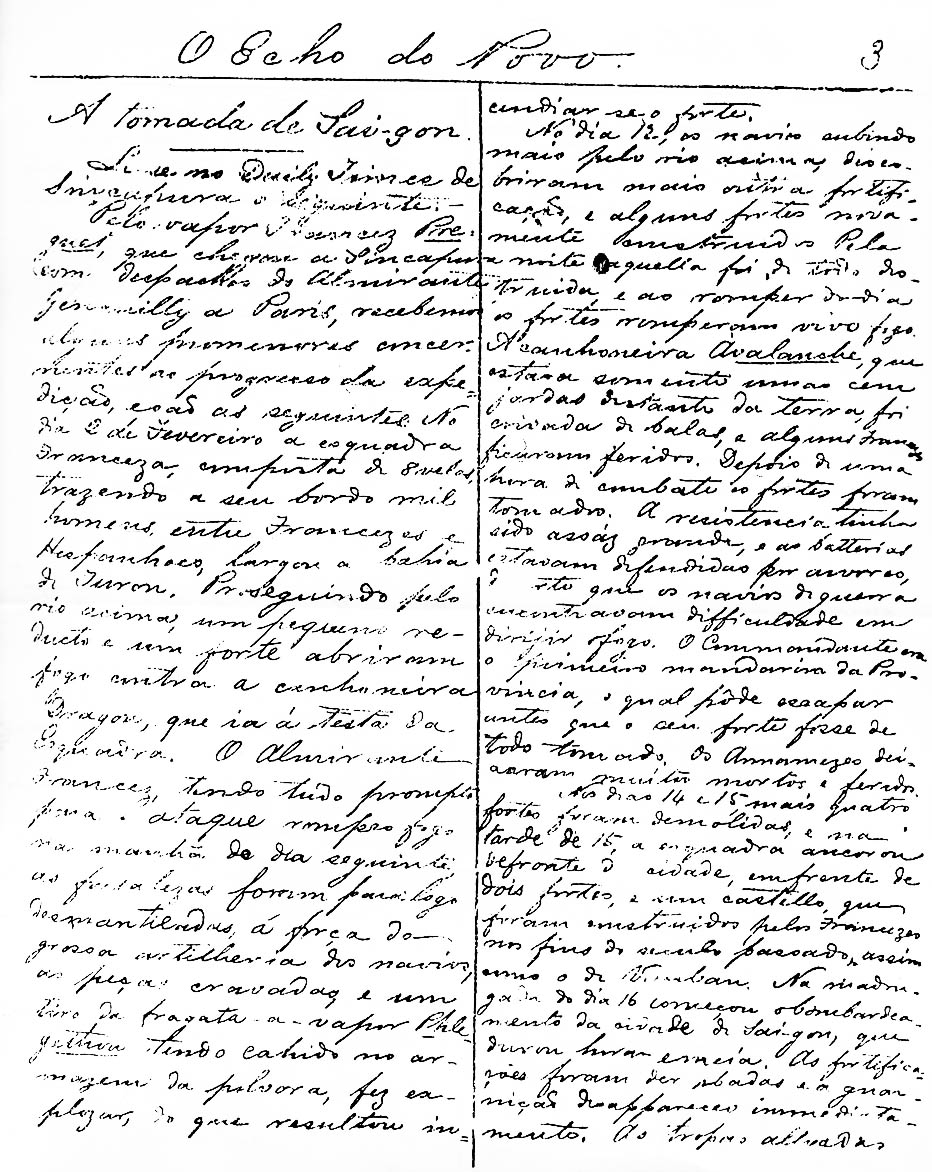 O Echo do Povo.
3
A tomada de Sai-gon.
Le-se no Daily Times de
Singapura o seguinte:—
Pelo vapor Francez Pre-
gent, que chegou a Sincapura
com despachos do Almirante
Genouilly a Paris, recebemos
alguns promenores concer-
nentes ao progresso da expe-
dição, e são as seguintes. No
dia 2 de Fevereiro a esquadra
Franceza, composta de 8 velas,
trazendo a seu bordo mil
homens, entre Francezes e
Hespanhoes, largou a bahia
de Turon. Proseguindo pelo
rio acima, um pequeno re-
ducto e um forte abriram
fogo contra a canhoneira
Dragon, que ia á testa da
Esquadra. O Almirante
Francez, tendo tudo prompto
para o ataque rompeo fogo
na manhã de dia seguinte,
as fortalezas foram para logo
desmantiladas, á força da
grossa artilheria dos navios,
as peças cravadas e um
tiro da fragata-a-vapor Phle-
gethon tendo cahido no ar-
mazem da polvora, fez ex-
plozar, do que resultou in-
cendiar-se o forte.
No dia 12, os navios subindo
mais pelo rio acima, disco-
briram mais outra fortifi-
cação, e alguns fortes nova-
mente construidos. Pela
noite aquella foi de todo des-
truida, e ao romper do dia
os fortes romperam vivo fogo.
A canhoneira Avalanche, que
estava somente umas cem
jardas distante da terra, foi
crivada de balas, e alguns Francezes
ficaram feridos. Depois de uma
hora de combate os fortes foram
tomados. A resistencia tinha
sido assáz grande, e as batterias
estavam defendidas por arvores,
que os navios de guerra
encontravam difficuldade em
dirijir o fogo. O Commandante era
o primeiro mandarim da Pro-
vincia, o qual pôde escapar
antes que o seu forte fosse de
todo tomado. Os Annamezes dei-
xaram muitos mortos e feridos.
Nos dias 14 e 15 mais quatro
fortes foram demolidas, e na
tarde de 15, a esquadra ancorou
defronte da cidade, em frente de
dois fortes, e um castello, que
foram construidos pelos Francezes
nos fins do seculo passado, assim
como o de Vauban. Na madru-
gada do dia 16 começou o bombardea-
mento da cidade de Sai-gon, que
durou hora e meia. As fortifica-
ções foram derrubadas e a guar-
nição desappareceo immediata-
mente. As tropas alliadas